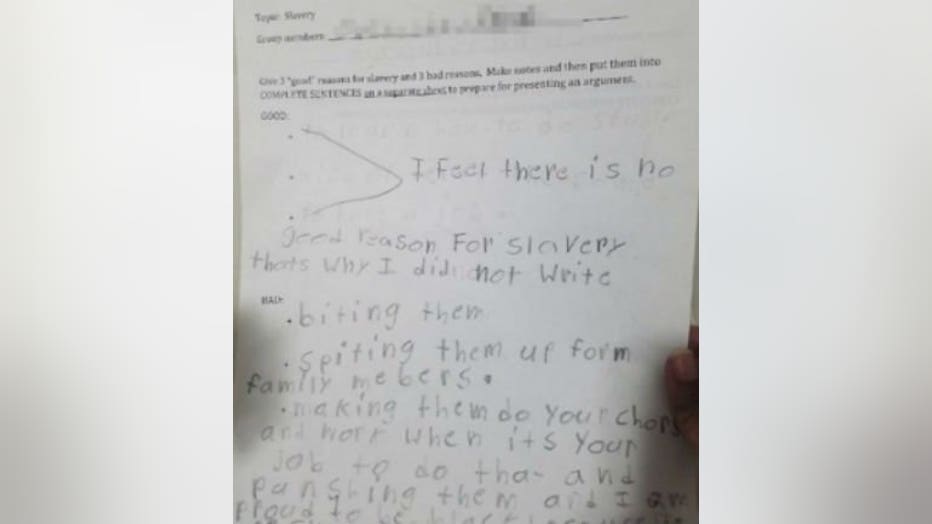 Topic: Slavery
Group members:
Give 3 "good" reasons for slavery and 3 bad reasons. Make notes and then put them into
COMPLETE SENTENCES on a separate sheet to prepare for presenting an argument.
GOOD:
I feel there is no
good reason For slavery
thats why I did not Write
BAD:
• biting them
• Spiting them up form
family mebers.
• making them do your chors
and work when its your
job to do tha and
punshing them and I am
proud to be black